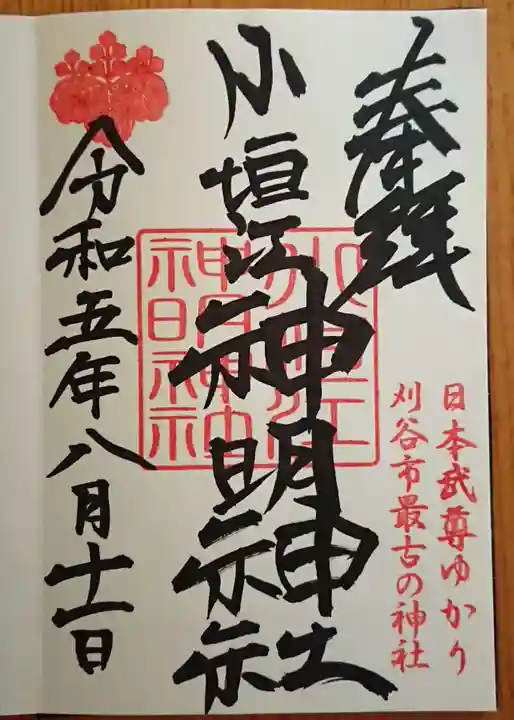 奉拝
日本武尊ゆかり
刈谷市最古の神社
小垣江神明神社
小垣江
神明神社
令和五年八月十一日